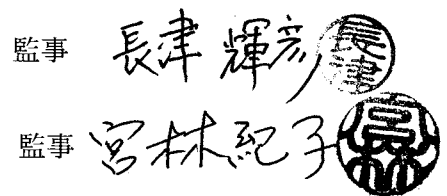 監事 長津 輝彦 長津
監事 宮林紀子 宮林